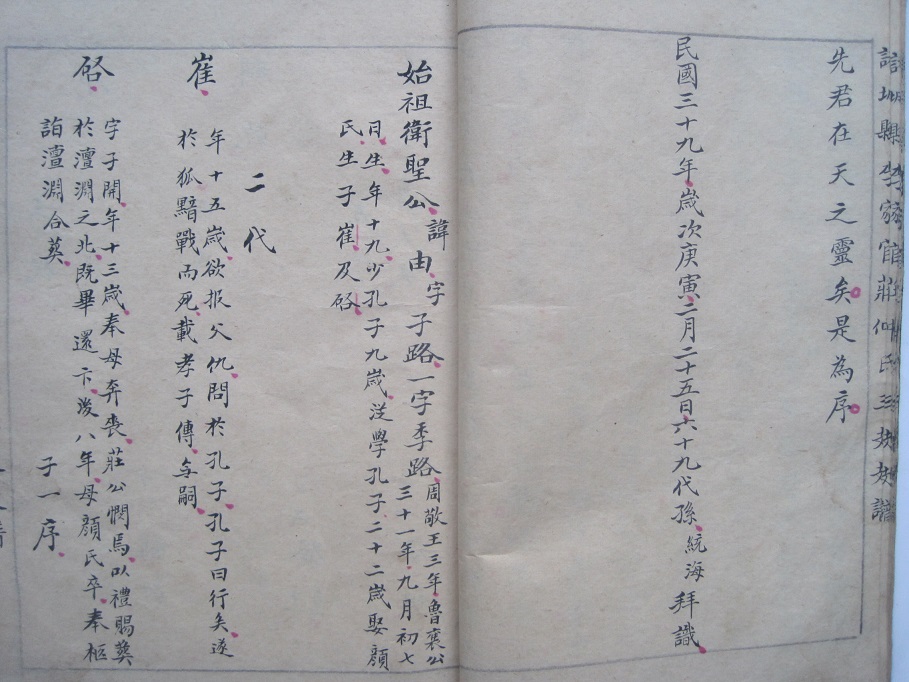 先君在天之靈矣是為序
民國三十九年歲次庚寅二月二十五日六十九代孫統海拜識
始祖衛聖公諱由字子路一字季路周敬王三年魯襄公
三十一年九月初七
日生年十九少孔子九歲從學孔子二十二歲娶顏
氏生子崔及啟
二代
崔
年十五歲欲报父仇問於孔子孔子曰行矣遂
於狐黯戰而死載孝子傳无嗣
啟
字子開年十三歲奉母奔喪莊公憫焉以禮賜葬
於澶淵之北既畢還卞後八年母顏氏卒奉柩
詣澶淵合葬
子一序